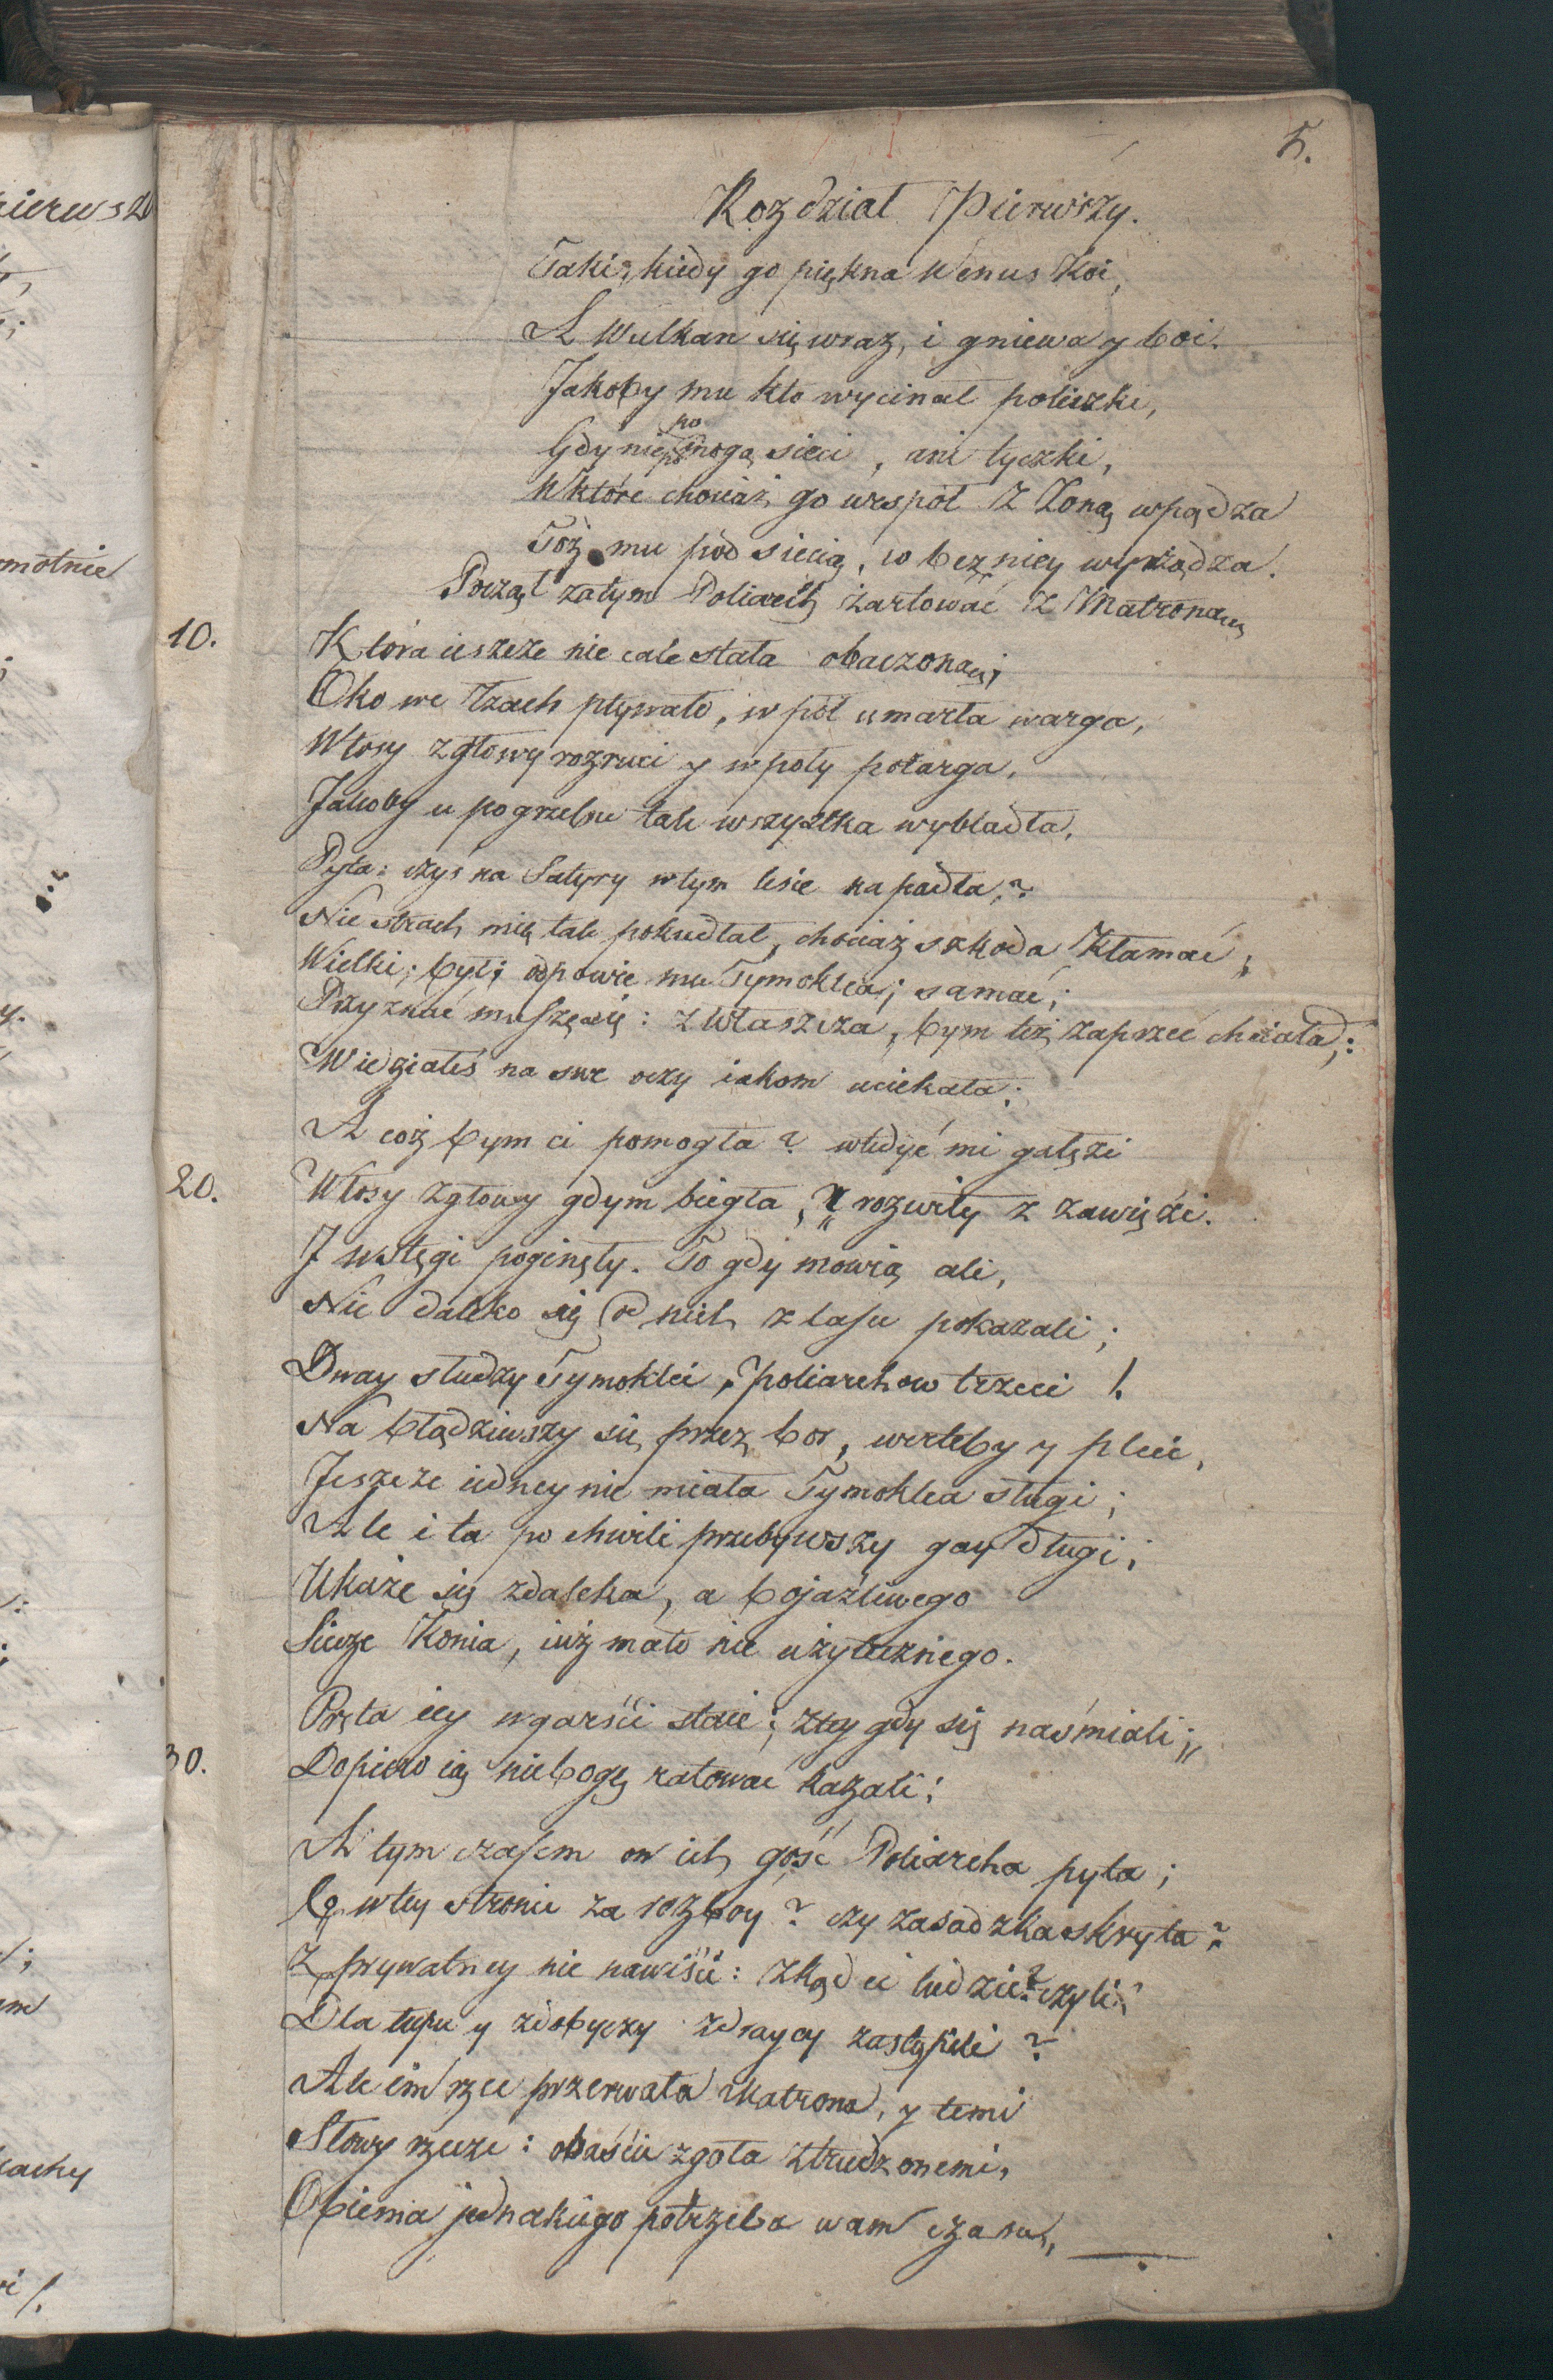 5.
Rozdział Pierwszy.
Taki, kiedy go piękna Wenus Koi,
A Wulkan się wraz, i gniewa y boi.
Jakoby mu kto wycinał policzki,
Gdy nie pomogą sieci, ani tyczki,
W które chociaż go wespół z Żoną wpądza
Toż mu pod siecią, co bez niey wyrządza.
Począł zatym Poliarch żartować z Matroną
10. Która ieszcze nie cale stała obaczoną;
Oko we łzach pływało, w pół umarła warga,
Włosy z głowy rozruci y w poły potarga,
Jakoby u pogrzebu tak wszyztka wybladła,
Pyta: czyś na Satyry w tym lesie napadła,?
Nie strach mię tak pokudłał, chociaż szkoda Kłamać,
Wielki; był; odpowie mu Tymoklea; samać;
Przyznać muszę się: zwłaszcza, bym też zaprzeć chciała;:
Widziałeś na swe oczy iakom uciekała;
A coż bym ci pomogła? wtedyć mi gałęzi
20. Włosy z głowy gdym biegła, rozwiły z zawięzi.
I wstęgi poginęły. To gdy mowią ali,
Nie daleko się od nich z lasu pokazali;
Dway słudzy Tymoklei, Poliarchow trzeci!
Nabłądziwszy się przez bor, werteby y pleci,
Jeszcze iedney nie miała Tymoklea sługi;
Ale i ta po chwili przebywszy gay długi,
Ukaże się zdaleka, a bojaźliwego
Siecze Konia, iuż mało nie użytecznego.
Pręta iey w garści staie; z tey gdy się naśmiali;
30. Dopiero ią niebogę ratować kazali:
A tym czasem on ich gość Poliarcha pyta;
Co w tey stronie za rozboy? czy zasadzka skryta?
Z prywatney nie nawiści: Zkąd ci ludzie? czyli
Dla łupu y zdobyczy zdraycy zastąpili?
Ale im rzecz przerwała Matrona, y temi
Słowy rzecze: obaście zgoła ztrudzonemi,
Obiema jednakiego potrzeba wam czasu,